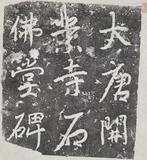 大唐開
業寺石
佛堂碑